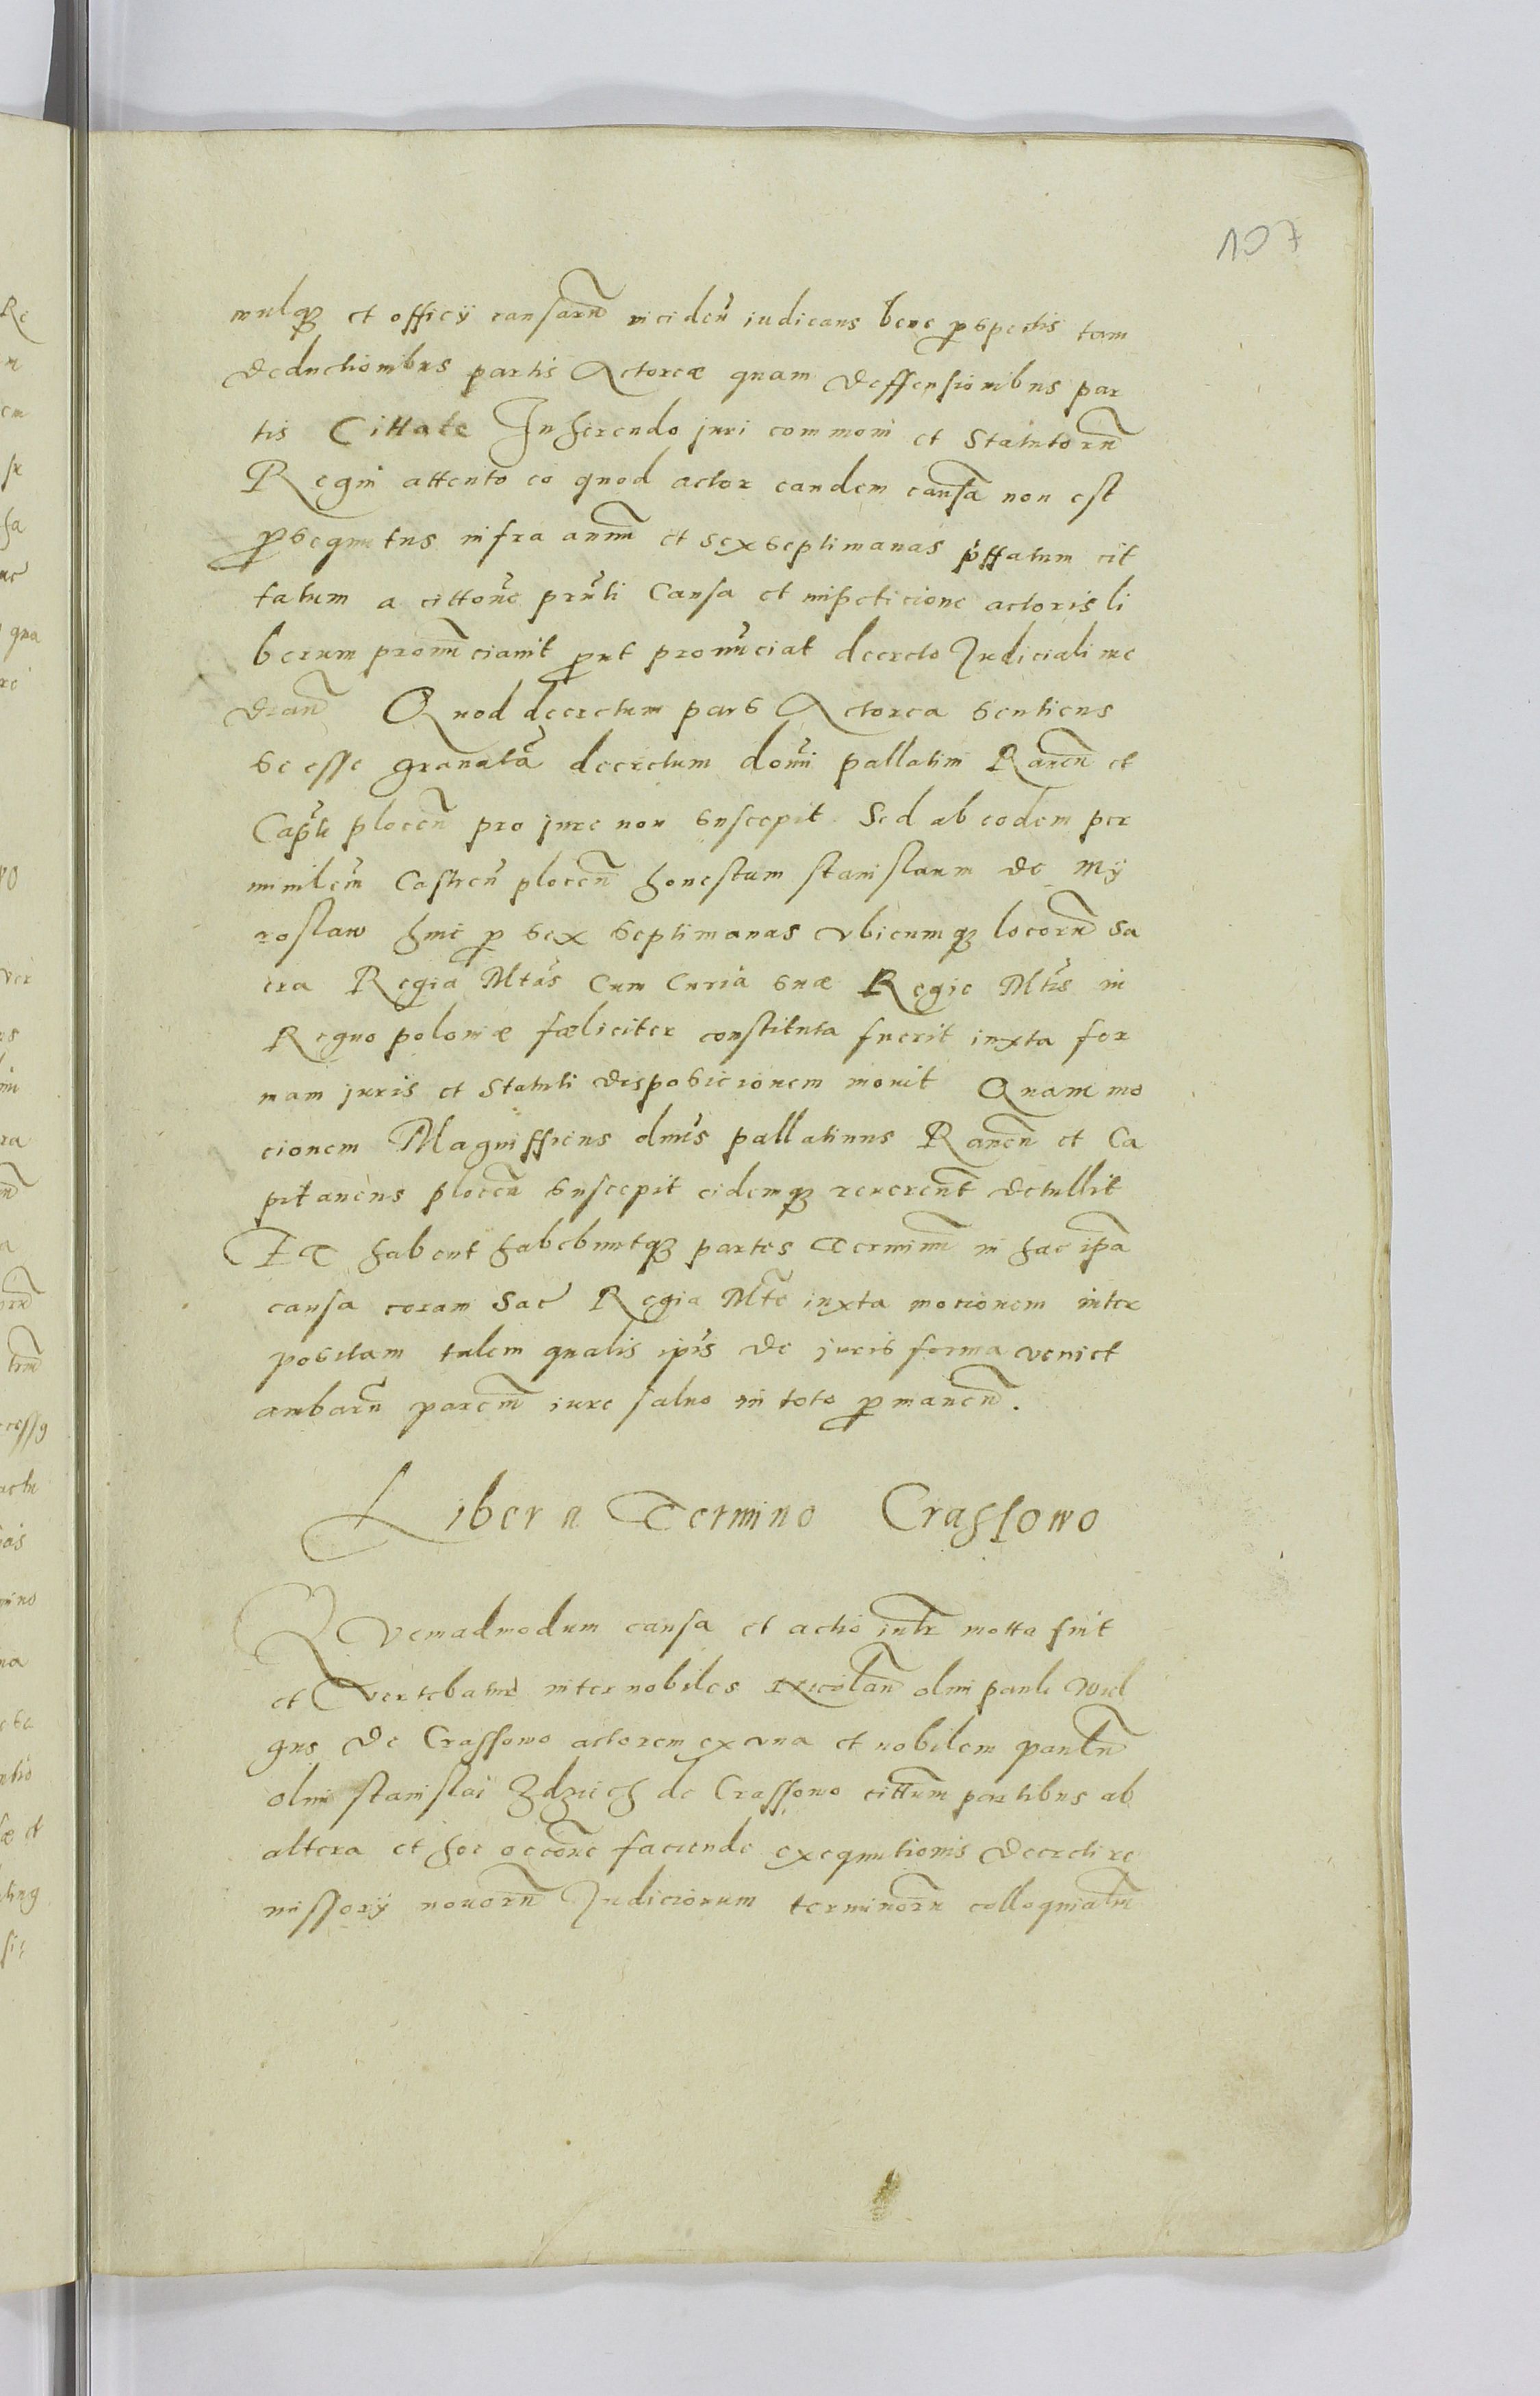 107
mulqȝ et officÿ causarũ inciden̄ iudicans bene perspectis tam
deductionibus partis Actoreæ quam deffensionibus par
tis Cittate Inherendo juri communi et Statutorũ
Regni attento eo quod actor eandem causã non est
prosequutus infra annũ et sex septimanas p̃ffatum cit
tatum a cittone prn̄ti Causa et impeticione actoris li
berum pronunciauit prout pronunciat decreto Judiciali me
dian̄ Quod decretum pars Actorea sentiens
se esse grauatã decretum domi pallatini Rauen̄ et
Capti plocen̄ pro jure non suscepit Sed ab eodem per
minilem̄ Castren̄ plocen̄ honestum stanislaum de Mÿ
roslaw hinc p sex septimanas vbicumqȝ locorũ Sa
cra Regia Mtas Cum Curia suæ Regie Mtis in
Regno poloniæ fœliciter constituta fuerit iuxta for
mam juris et Statuti disposicionem mouit Quam mo
cionem Magnifficus dnus pallatinus Rauen̄ et Ca
pitaneus plocen̄ suscepit eidemqȝ reueren̄t detullit
Et habent habebuntqȝ partes terminũ in hac ip̄a
causa coram Sac Regia Mte iuxta mocionem inter
positam talem qualis ipis de juris forma veniet
ambarũ parcium̄ iure saluo in toto permanen̄.
Liber a Termino Crassowo
Quemadmodum causa et actio int̄r motta fuit
et vertebatur inter nobiles olim pauli Wiel
gus de Crassowo actorem ex vna et nobilem paulũ
olim stanislai Zdzich de Crassowo cittum partibus ab
altera et hoc occone faciende exequutionis decreti re
missorÿ nouorũ Judiciorum terminorũ colloquialiũ